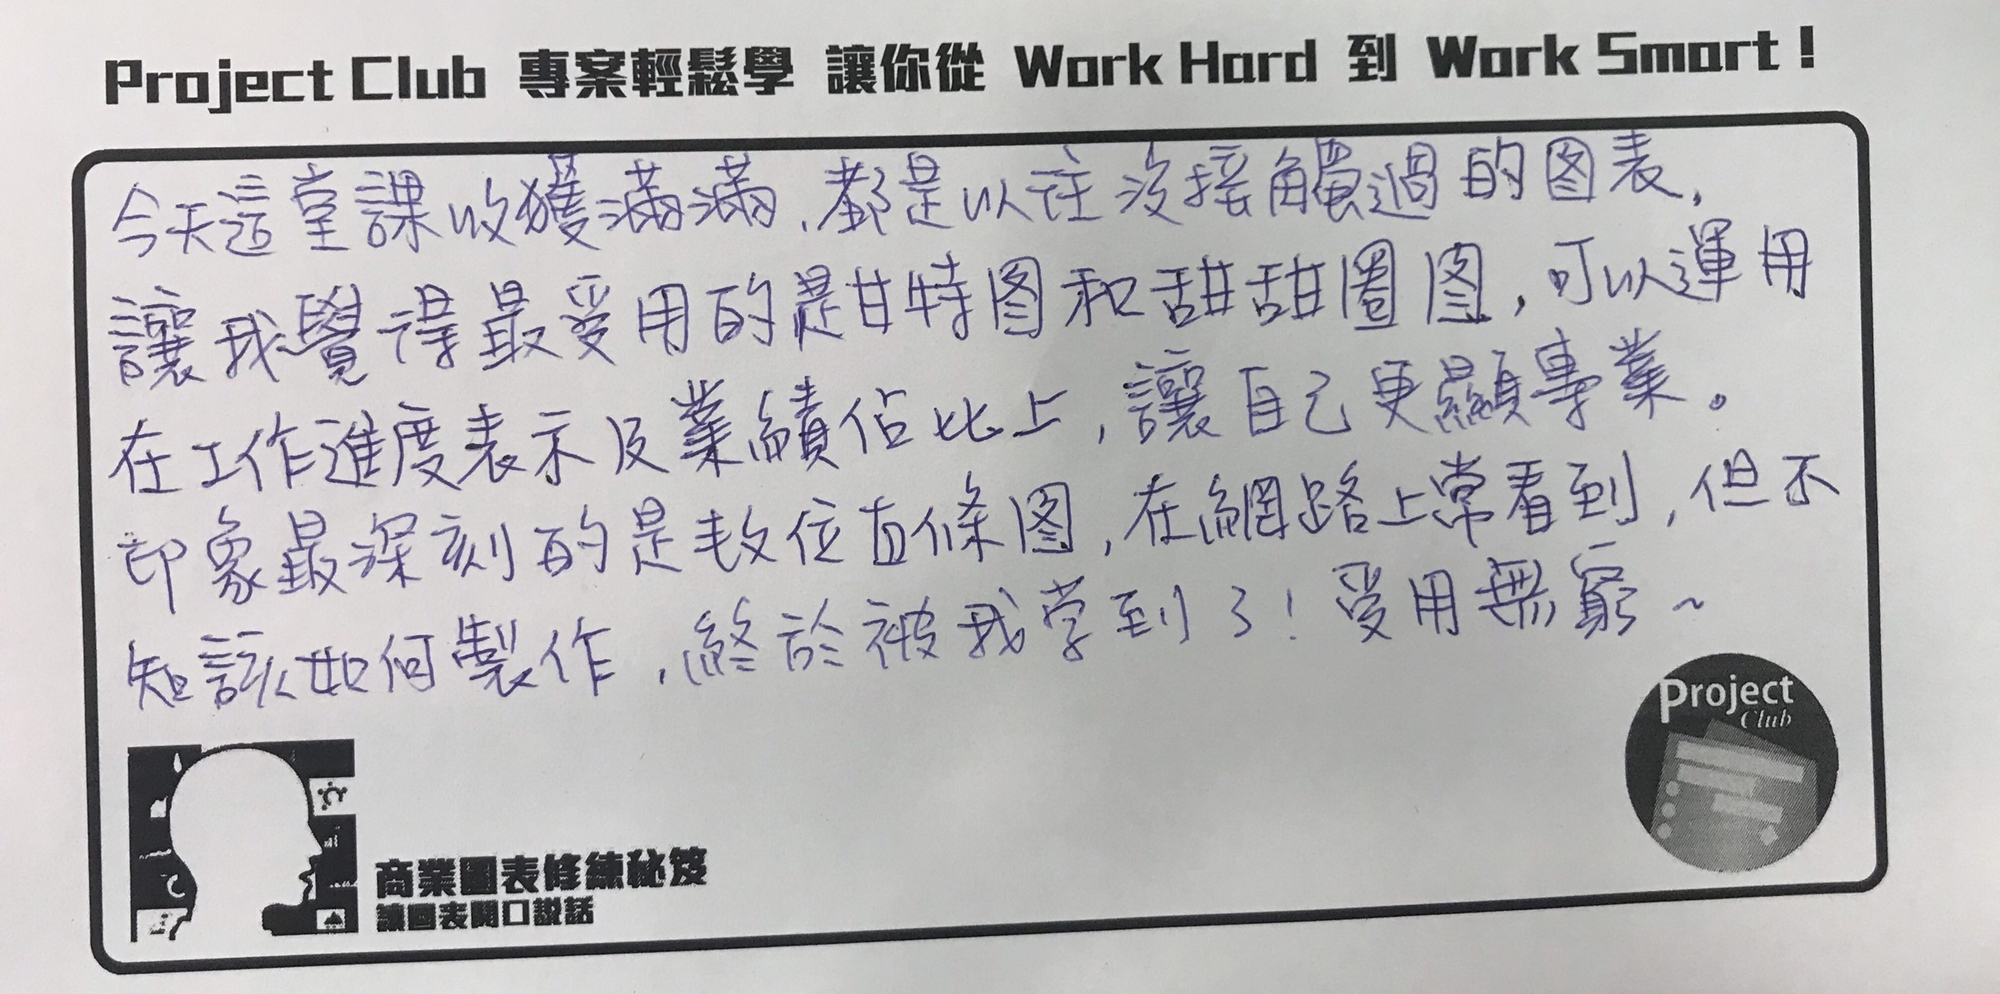 Project Club 專案輕鬆學 讓你從 Work Hard 到 Work Smart！
今天這堂課收獲滿滿，都是以往沒接觸過的图表，
讓我覺得最受用的是甘特图和甜甜圈图，可以運用
在工作進度表示及業績佔比上，讓自己更顯專業。
印象最深刻的是数位直條图，在網路上常看到，但不
知該如何製作，終於被我学到了！受用無窮～
Project
Club
商業圖表修練秘笈
讓圖表開口說話